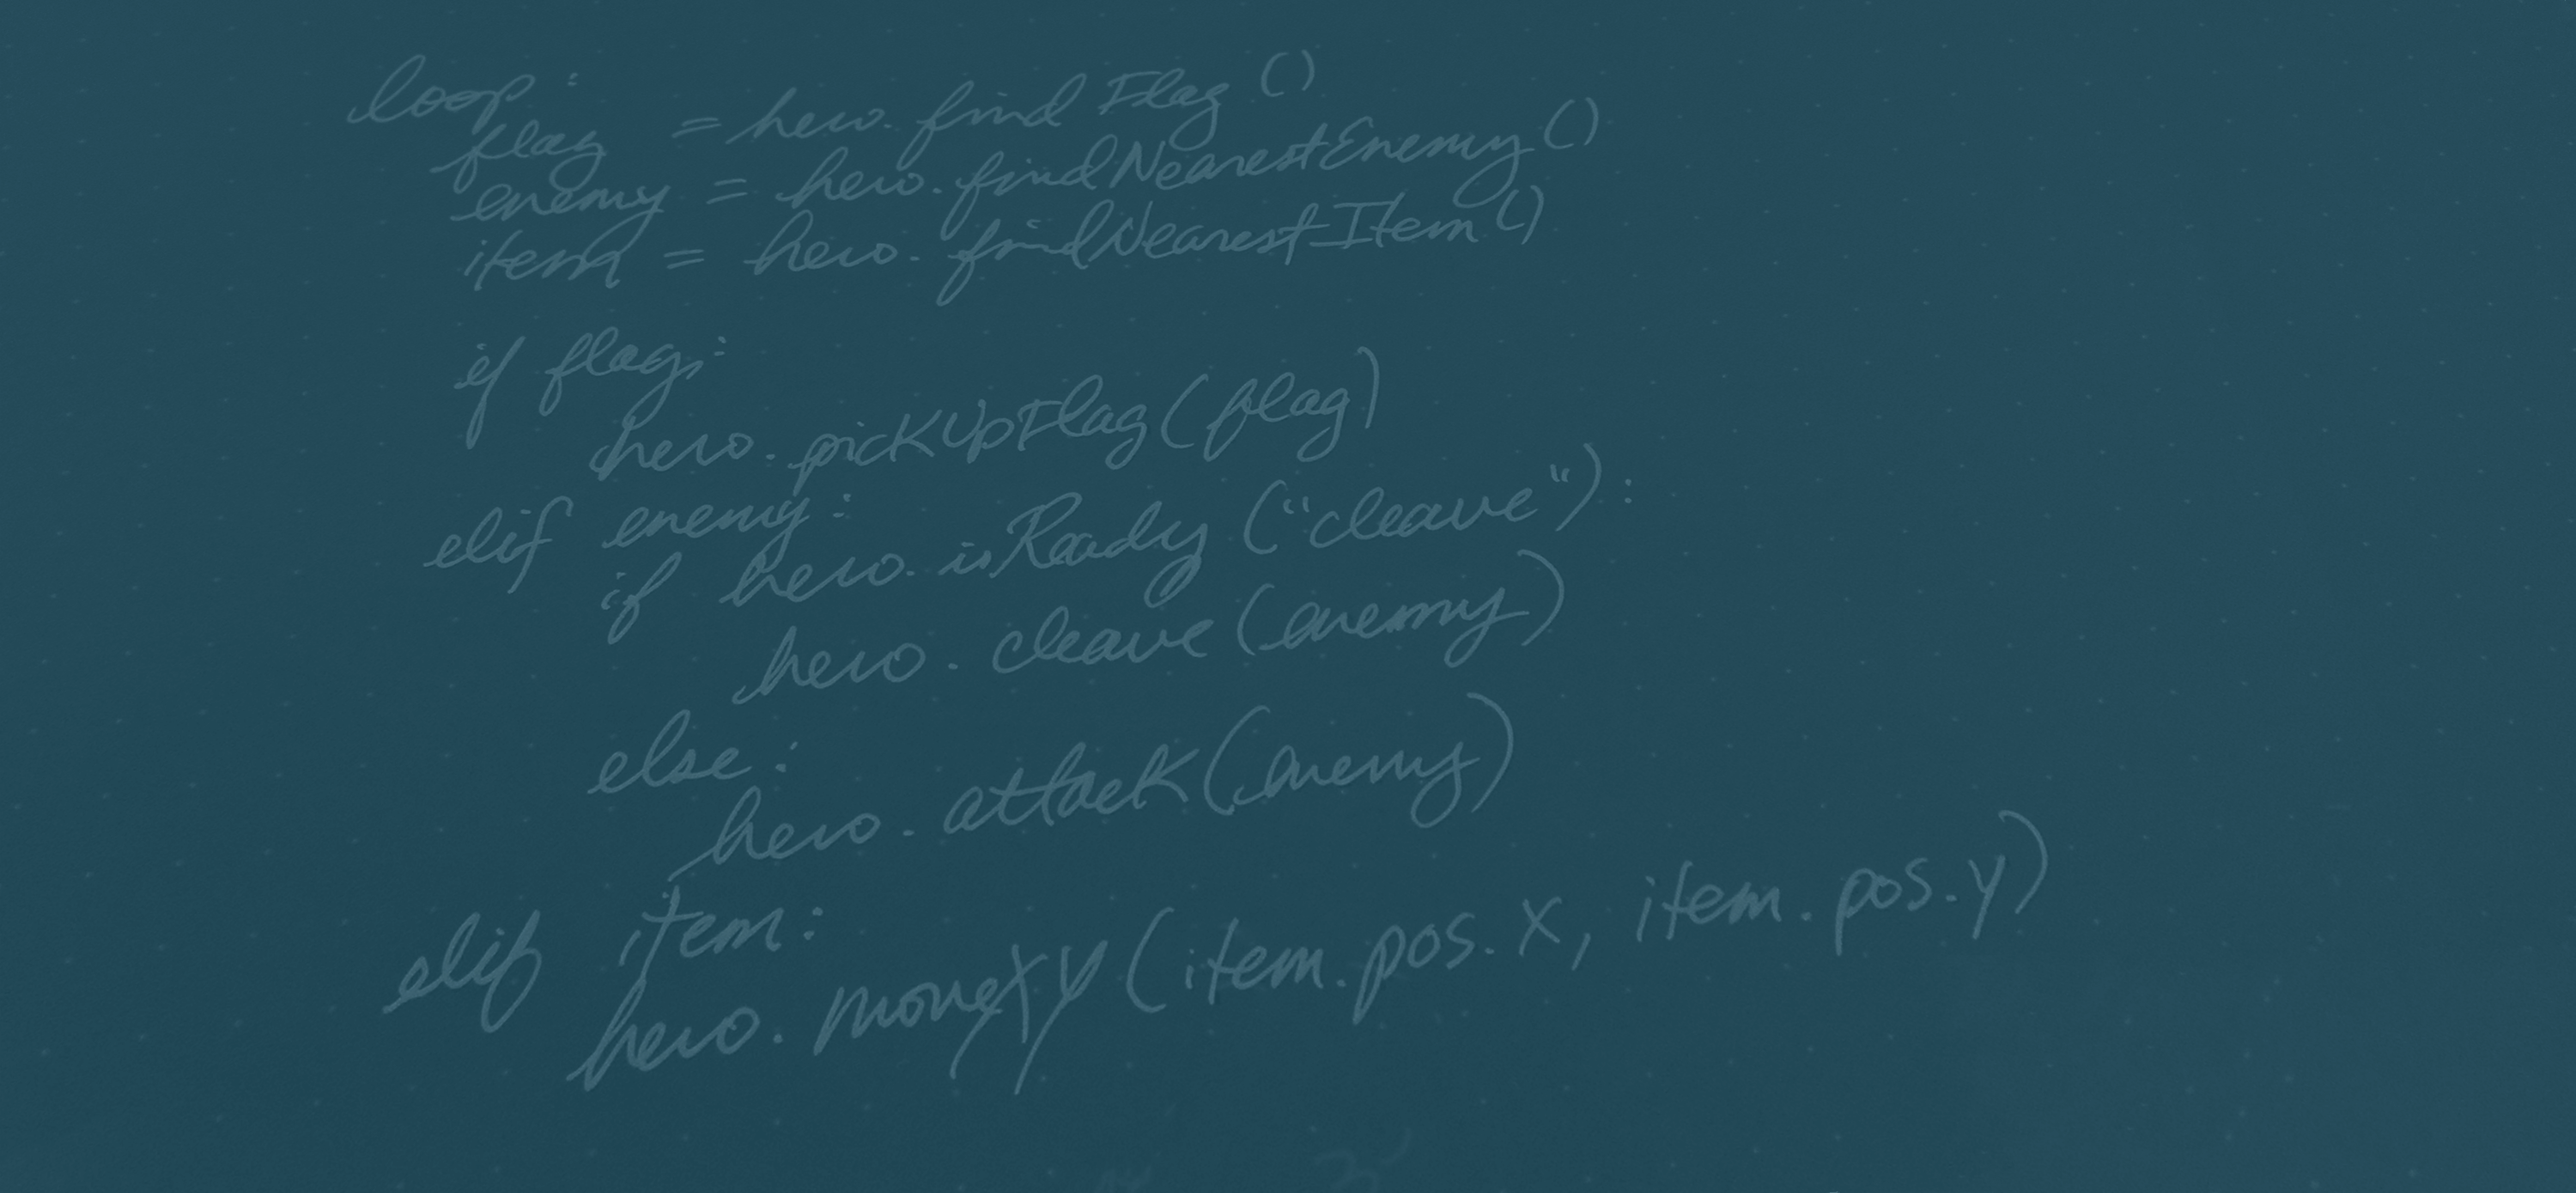 loop:
flag = hero.findFlag()
enemy = hero.findNearestEnemy()
item = hero.findNearestItem()
if flag:
hero.pickUpFlag(flag)
elif enemy:
if hero.isReady("cleave"):
hero.cleave(enemy)
else:
hero.attack(enemy)
elif item:
hero.moveXY(item.pos.x, item.pos.y)